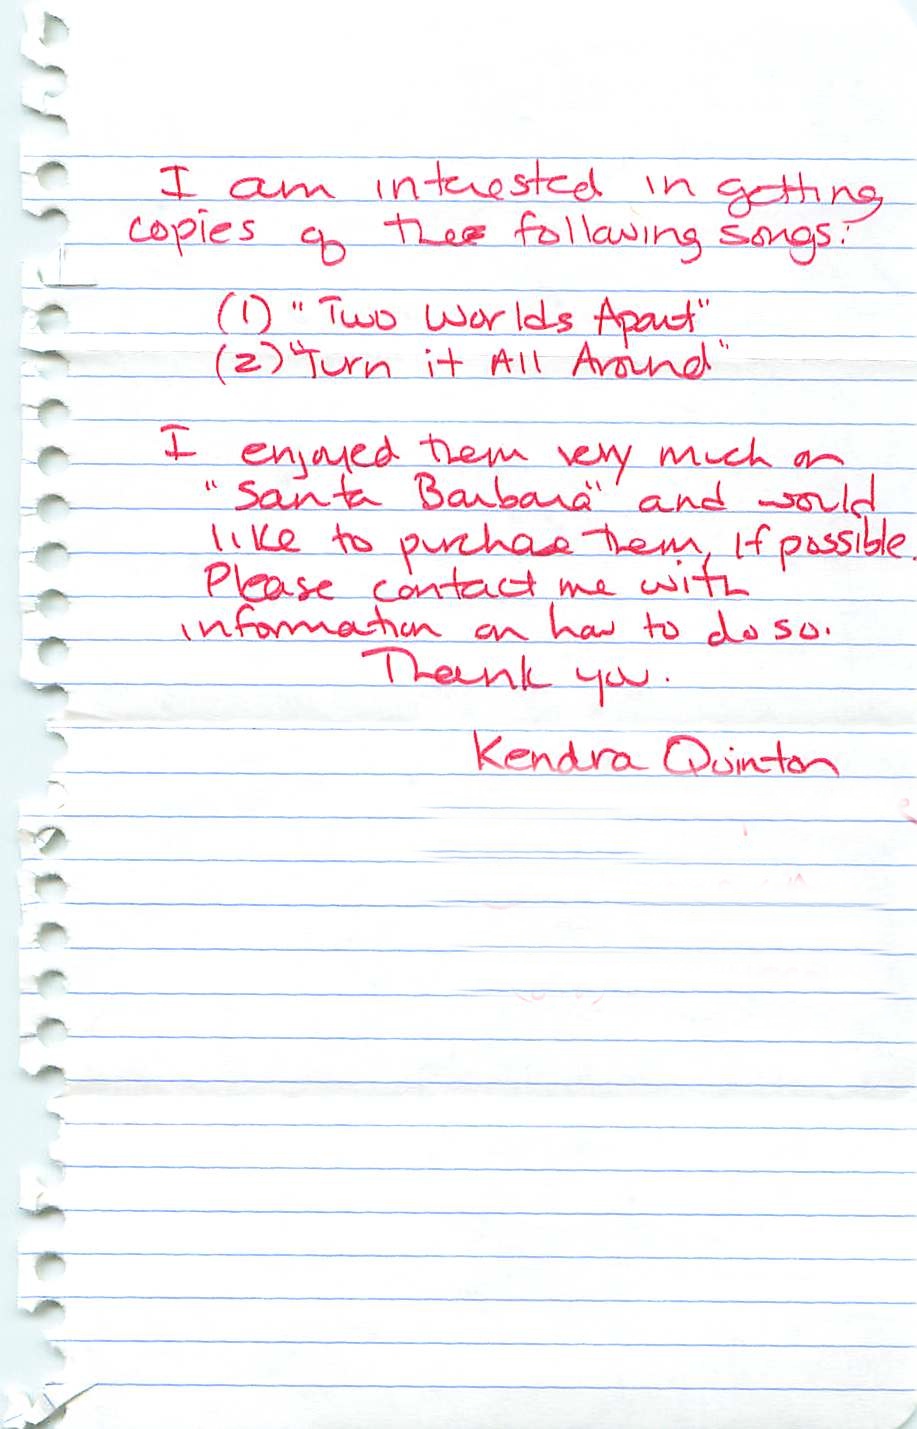 I am interested in getting
copies of the following songs:
(1) "Two Worlds Apart"
(2) "Turn it All Around"
I enjoyed them very much on
"Santa Barbara" and would
like to purchase them, if possible.
Please contact me with
information on how to do so.
Thank you.
Kendra Quinton